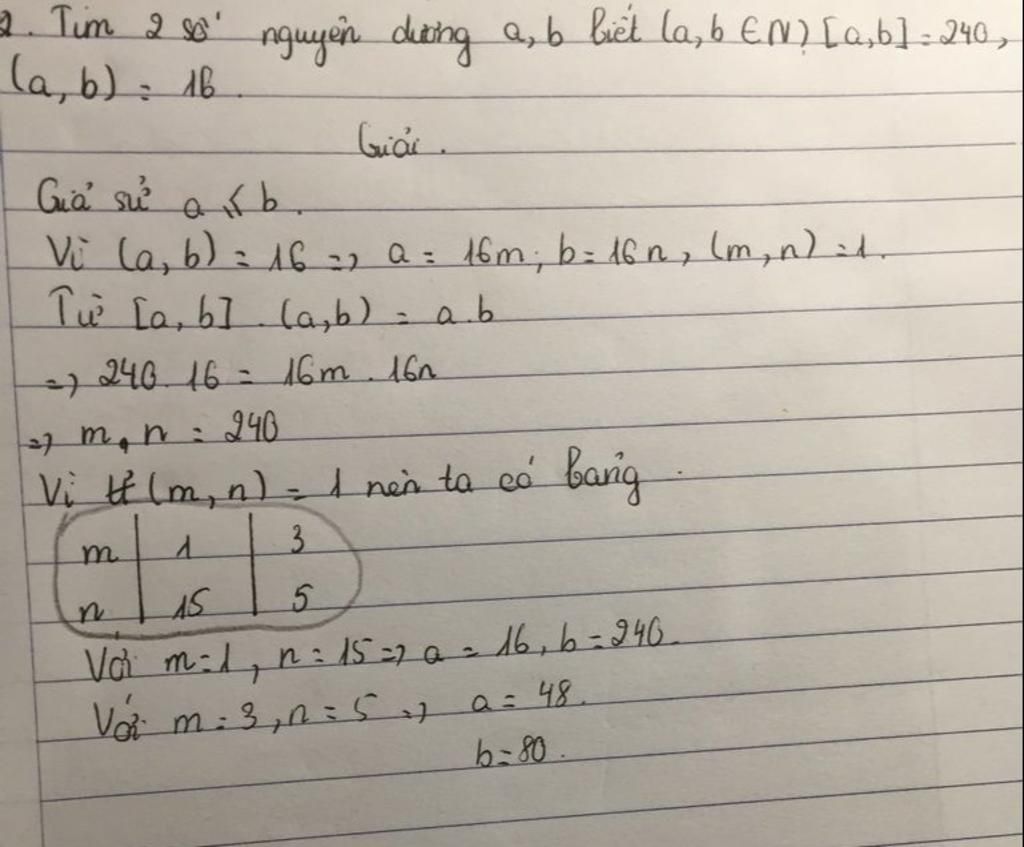 2. Tìm 2 số nguyên dương a, b biết (a, b ∈ N) [a,b] = 240,
(a, b) = 16.
Giải.
Giả sử a ≤ b.
Vì (a, b) = 16 => a = 16m; b = 16n, (m, n) = 1.
Từ [a, b] . (a,b) = a.b
=> 240. 16 = 16m . 16n
=> m . n = 240
Vì (m, n) = 1 nên ta có bảng.
m | 1 | 3
n | 15 | 5
Với m = 1, n = 15 => a = 16, b = 240.
Với m = 3, n = 5 => a = 48.
b = 80.